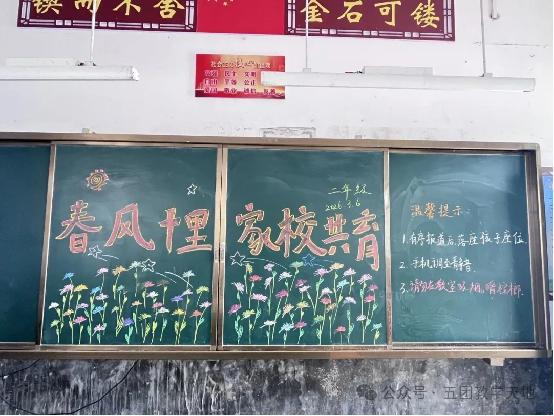 锲而不舍
金石可镂
富强 民主 文明 和谐
自由 平等 公正 法治
爱国 敬业 诚信 友善
春风十里
家校共育
二年级
2026.3.6
温馨提示:
1.有序报道后,落座孩子座位.
2.手机调至静音.
3.请勿在教室吸烟,嚼槟榔.
公众号·五团教学天地